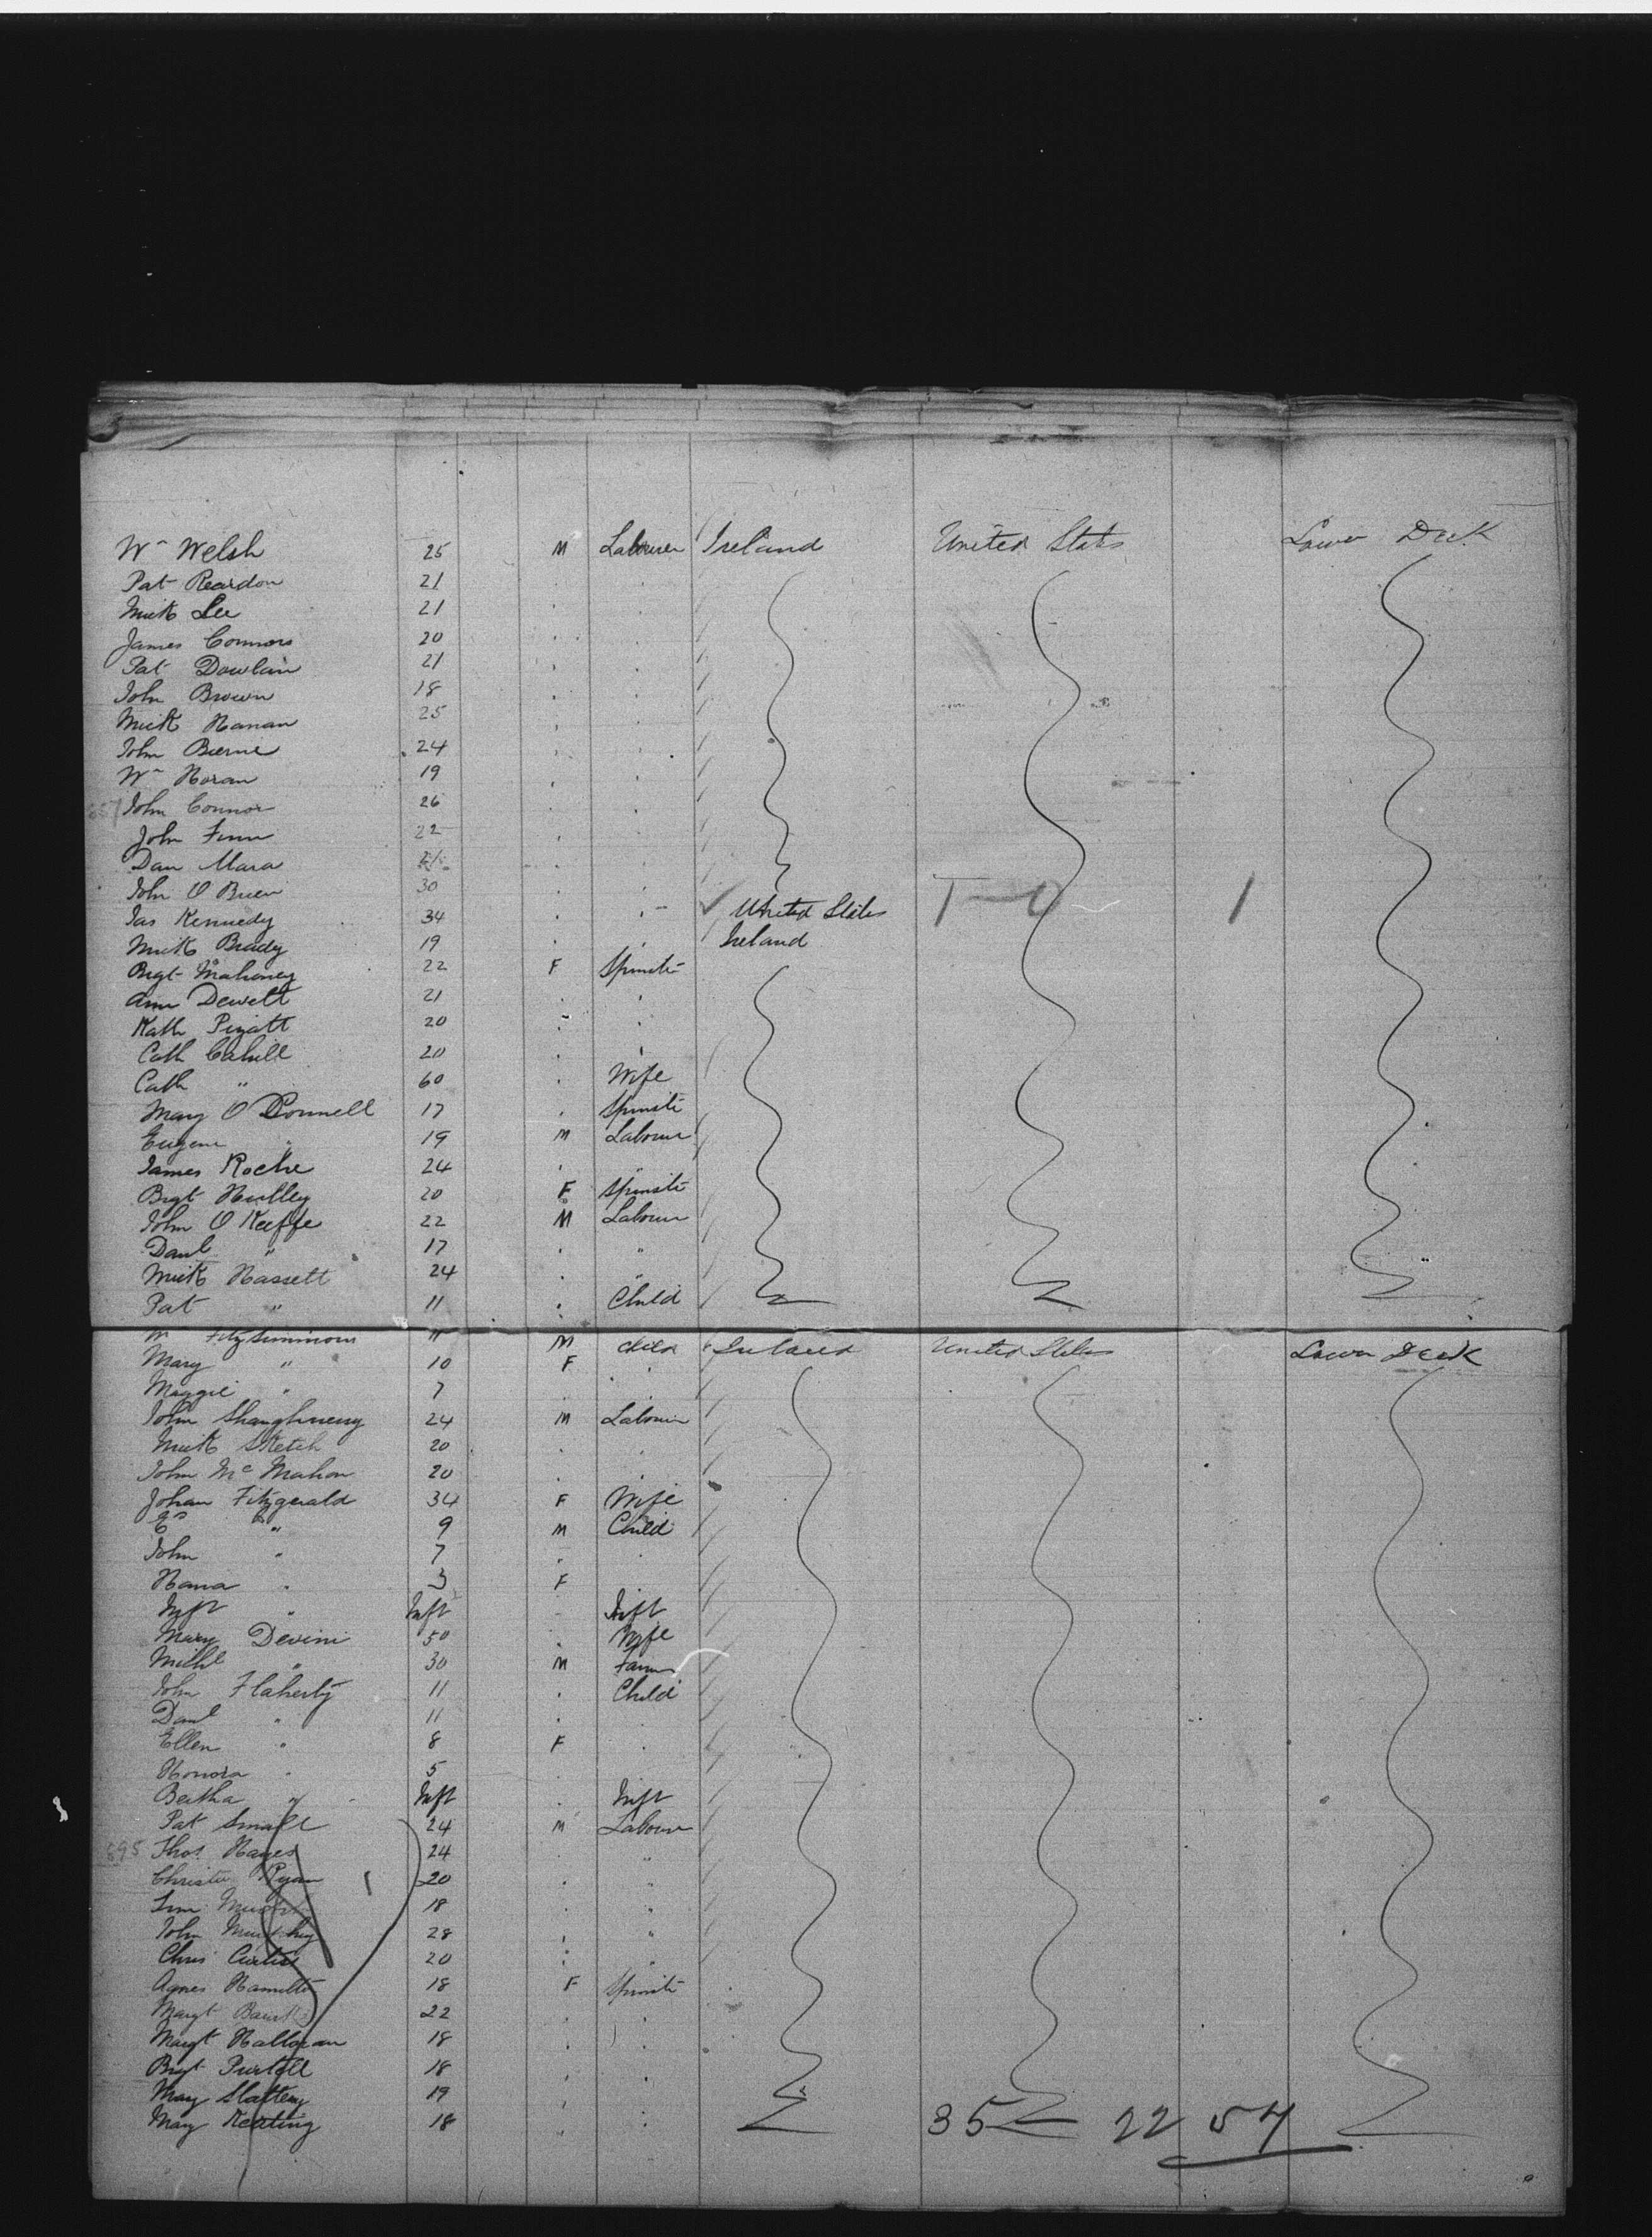 Wm Welsh 25 M Labourer Ireland United States Lower Deck
Pat Reardon 21
Mick Lee 21
James Connors 20
Pat Dowlain 21
John Brown 18
Mick Hanan 25
John Bierne 24
Wm Horan 19
John Connor 26
John Finn 22
Dan Mara
John O Brien 30
Jas Kennedy 34 United States 1
Mick Brady 19 Ireland
Brgt Mahoney 22 F Spinste
Ann Dewett 21
Kath Pigatt 20
Cath Cahill 20
Cath " 60 Wife
Mary O Donnell 17 Spinste
Eugene " 19 M Labour
James Roche 24
Brgt Hurlley 20 F Spinste
John O Keeffe 22 M Labour
Danl " 17 "
Mick Hassett 24
Pat " 11 Child
W Fitzsimmons 11 M child Ireland United States Lower Deck
Mary " 10 F
Maggie " 7
John Shaughnessy 24 M Labour
Mick Sketch 20
John Mc Mahon 20
Johan Fitzgerald 34 F Wife
" 9 M Child
John " 7
Hana " 3 F
Inft " Inft Inft
Mary Devini 50 Wife
Michl " 30 M Farmr
John Flaherty 11 Child
Danl " 11
Ellen " 8 F
Honora " 5
Bertha " Inft Inft
Pat Small 24 M Labour
Thos. Hayes 24 "
Christie Ryan 20 "
18 "
John Murphy 28 "
Chris Curtis 20 "
Agnes Hamilto 18 F Spinste
Margt 22
Margt Halloran 18
Brgt Purtell 18
Mary Slattery 19
Mary Keating 18
35 22 54